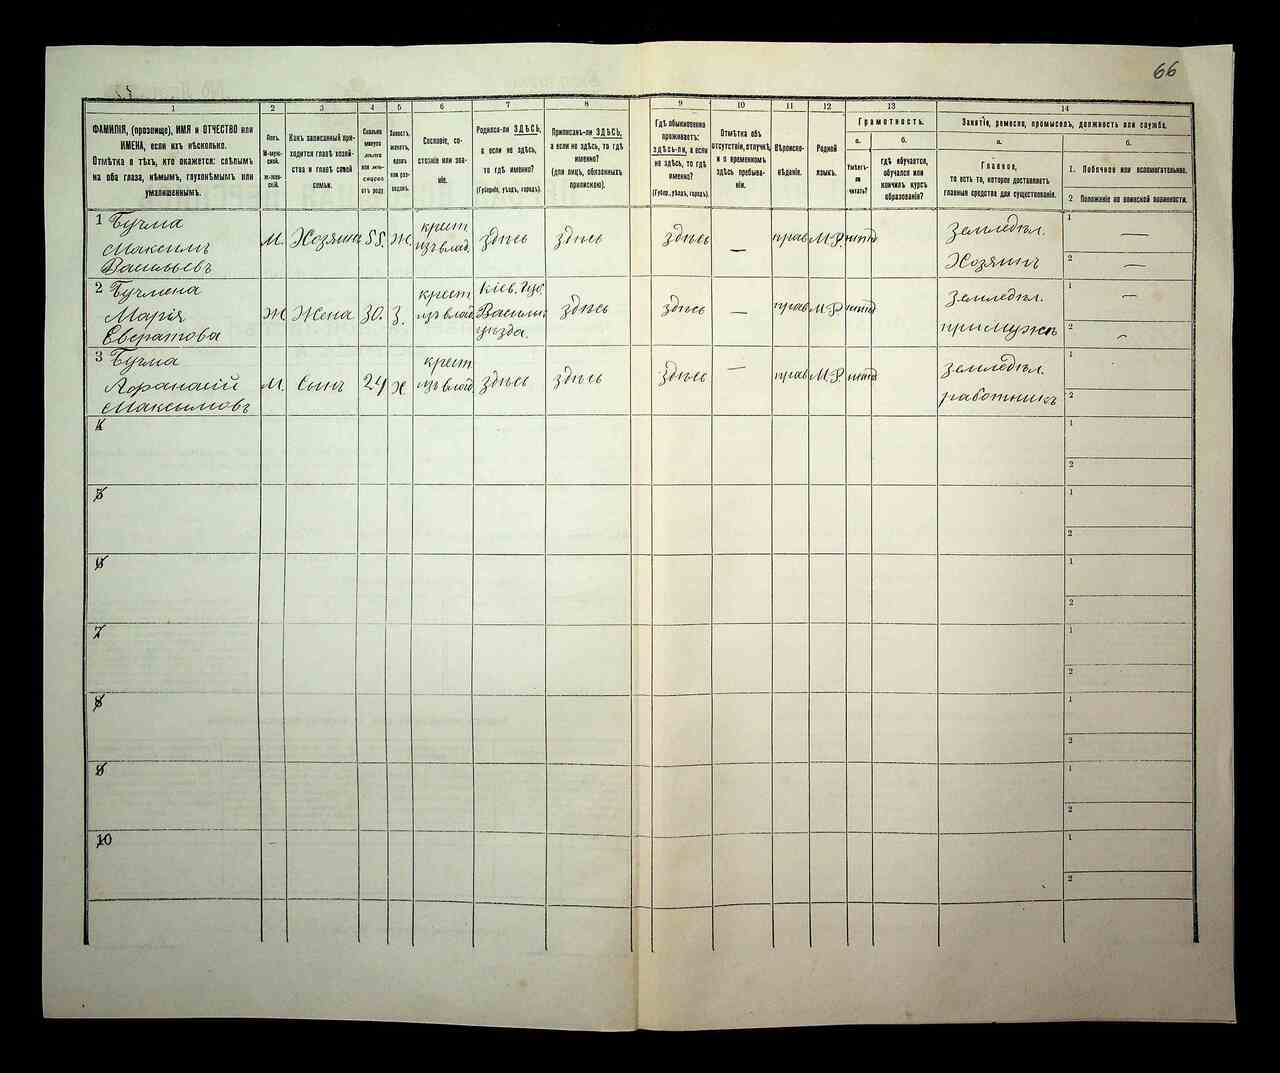 66
1
2
3
4
5
6
7
8
9
10
11
12
13
14
ФАМИЛІЯ, (прозвище), ИМЯ и ОТЧЕСТВО или
ИМЕНА, если ихъ нѣсколько.
Отмѣтка о тѣхъ, кто окажется: слѣпымъ
на оба глаза, нѣмымъ, глухонѣмымъ или
умалишеннымъ.
Полъ.
М-муж-
ской.
Ж-жен-
скій.
Какъ записанный при-
ходится главѣ хозяй-
ства и главѣ своей
семьи.
Сколько
минуло
лѣтъ
или мѣ-
сяцевъ
отъ роду
Холостъ,
женатъ,
вдовъ
или раз-
веденъ.
Сословіе, со-
стояніе или зва-
ніе.
Родился-ли ЗДѢСЬ,
а если не здѣсь,
то гдѣ именно?
(Губернія, уѣздъ, городъ).
Приписанъ-ли ЗДѢСЬ,
а если не здѣсь, то гдѣ
именно?
(для лицъ, обязанныхъ
припискою).
Гдѣ обыкновенно
проживаетъ:
ЗДѢСЬ-ли, а если
не здѣсь, то гдѣ
именно?
(Губер., уѣздъ, городъ).
Отмѣтка объ
отсутствіи, отлучкѣ
и о временномъ
здѣсь пребыва-
ніи.
Вѣроиспо-
вѣданіе.
Родной
языкъ.
Грамотность.
а.
Умѣетъ-
ли
читать?
б.
гдѣ обучается,
обучался или
кончилъ курсъ
образованія?
Занятіе, ремесло, промыселъ, должность или служба.
а.
Главное,
то есть то, которое доставляетъ
главныя средства для существованія.
б.
1. Побочное или вспомогательное.
2 Положеніе по воинской повинности.
1 Бучма
Максимъ
Васильевъ
М. Хозяинъ 55. Ж.
крест
изъ влад.
здѣсь здѣсь здѣсь — прав М.Р. нѣтъ
Земледѣл.
Хозяинъ
1 —
2 —
2 Бучмена
Марія
Ж Жена 30. З.
крест
изъ влад
Кіев. Губ.
уѣзда.
здѣсь здѣсь — прав М.Р нѣтъ
Земледѣл.
при мужѣ
1 —
2 -
3 Бучма
Афанасій
Максимовъ
М. Сынъ 24 х
крест
изъ влад
здѣсь здѣсь здѣсь — прав М.Р. нѣтъ
Земледѣл.
работникъ
1
2
4
1
2
5
1
2
6
1
2
7
1
2
8
1
2
9
1
2
10
1
2